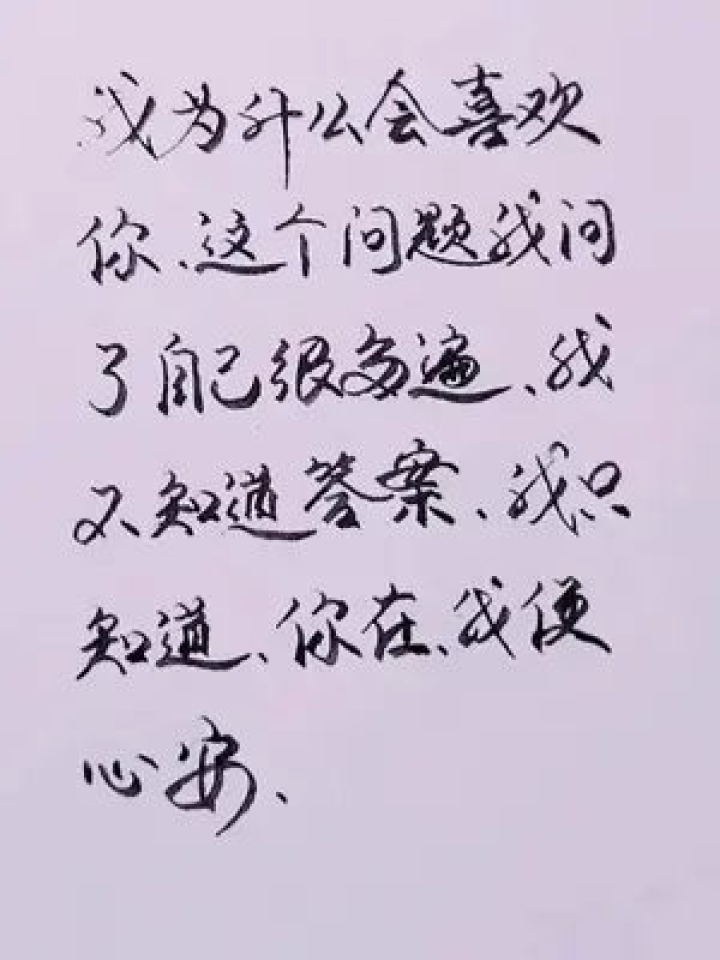 我为什么会喜欢
你、这个问题我问
了自己很多遍、我
不知道答案、我只
知道、你在、我便
心安、